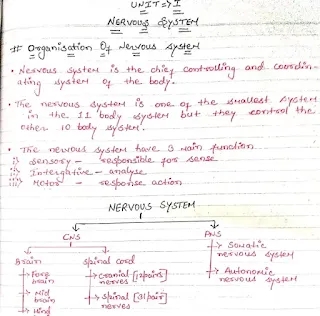 UNIT => I
NERVOUS SYSTEM
# Organisation Of Nervous System
• Nervous system is the chief controlling and coordin-
ating system of the body.
• The nervous system is one of the smallest system
in the 11 body system but they control the
other 10 body system.
• The nervous system have 3 main function
i) Sensory - responsible for sense
ii) Intergative - analyse
iii) Motor - response action
NERVOUS SYSTEM
CNS PNS
Brain Spinal cord → Somatic nervous system
→ Fore brain → Cranial nerves [12 pairs] → Autonomic nervous system
→ Mid brain → Spinal nerves [31 pair]
→ Hind